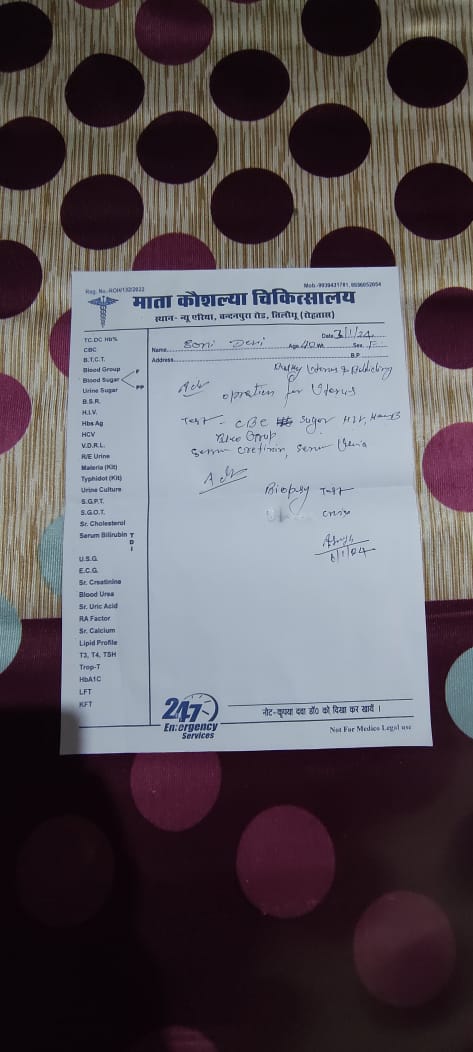 Reg. No.-ROH/132/2022
Mob.-9939431781, 8936052654
माता कौशल्या चिकित्सालय
स्थान- न्यू एरिया, चन्दनपुरा रोड, तिलौथू (रोहतास)
Name Soni Devi Age 40 Wt. Sex F Date
Address B.P.
TC.DC Hb%
CBC
B.T.C.T.
Blood Group
Blood Sugar F PP
Urine Sugar
B.S.R.
H.I.V.
Hbs Ag
HCV
V.D.R.L.
R/E Urine
Maleria (Kit)
Typhidot (Kit)
Urine Culture
S.G.P.T.
S.G.O.T.
Sr. Cholesterol
Serum Bilirubin T D I
U.S.G.
E.C.G.
Sr. Creatinine
Blood Urea
Sr. Uric Acid
RA Factor
Sr. Calcium
Lipid Profile
T3, T4, TSH
Trop-T
HbA1C
LFT
KFT
Bulky Uterus &
Adv opration for Uterus
Test - CBC Sugar HIV,
Group
Serum Cretinin, Serum
Adv
Biopsy Test
24x7
Emergency
Services
नोट-कृपया दवा डॉ० को दिखा कर खायें ।
Not For Medico Legal use